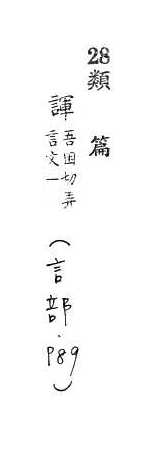 28 類篇
諢 吾困切弄
言文一
（言部．P89）